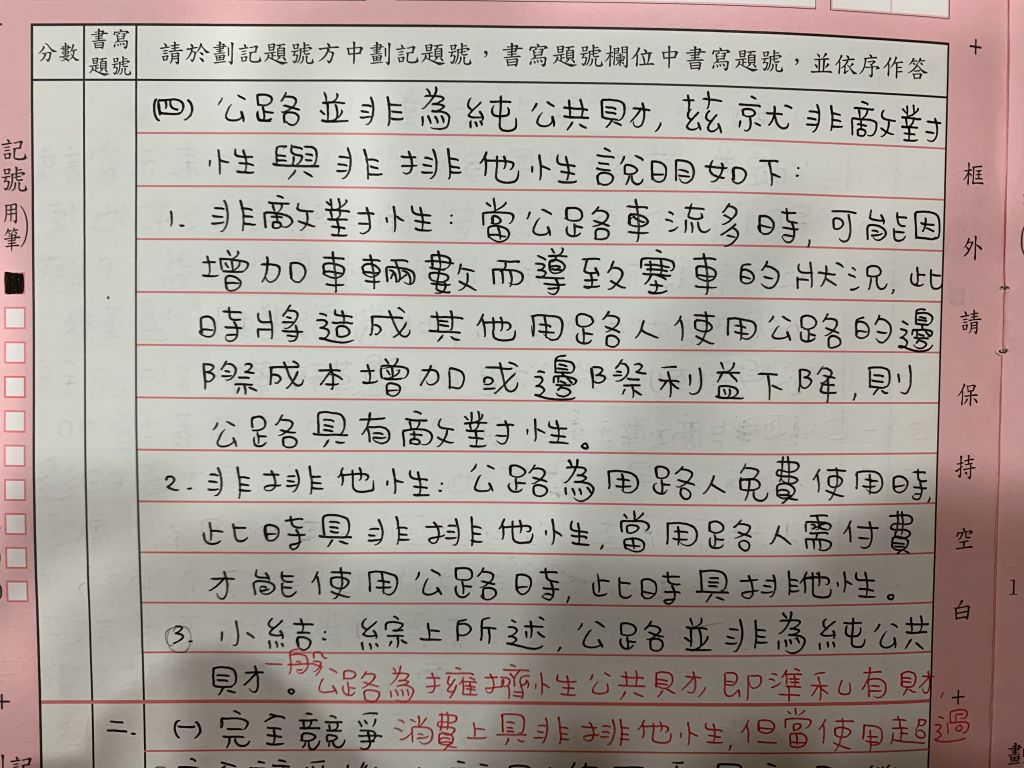 分數
書寫題號
請於劃記題號方中劃記題號，書寫題號欄位中書寫題號，並依序作答
(四) 公路並非為純公共財，茲就非敵對
性與非排他性說明如下：
1. 非敵對性：當公路車流多時，可能因
增加車輛數而導致塞車的狀況，此
時將造成其他用路人使用公路的邊
際成本增加或邊際利益下降，則
公路具有敵對性。
2. 非排他性：公路為用路人免費使用時，
此時具非排他性，當用路人需付費
才能使用公路時，此時具排他性。
③. 小結：綜上所述，公路並非為純公共
財。一般公路為擁擠性公共財，即準私有財，
二. (一) 完全競爭 消費上具非排他性，但當使用超過
記號
用筆)
框外請保持空白
1
劃